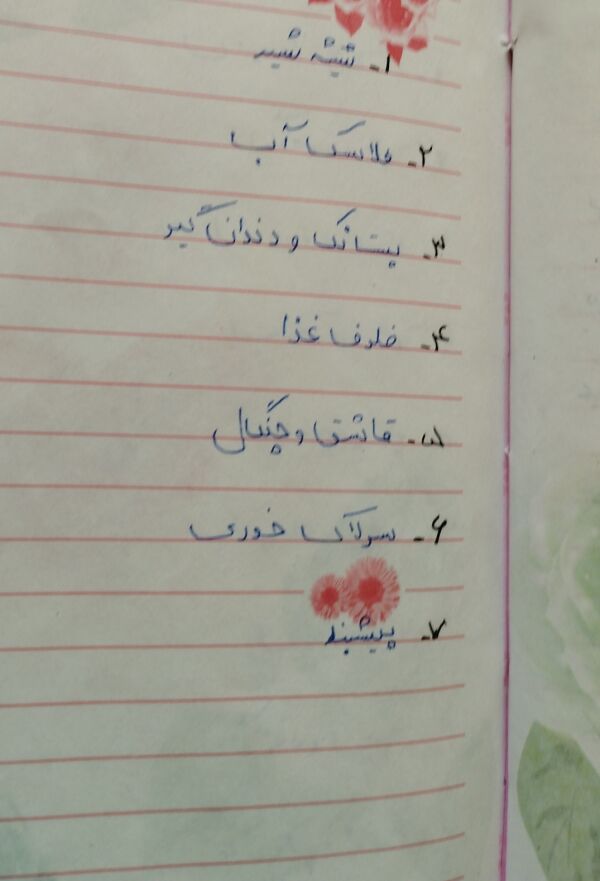 ۱- شیشه شیر
۲- فلاسک آب
۳- پستانک و دندان گیر
۴- ظرف غذا
۵- قاشق و چنگال
۶- سرلاک خوری
۷- پیشبند